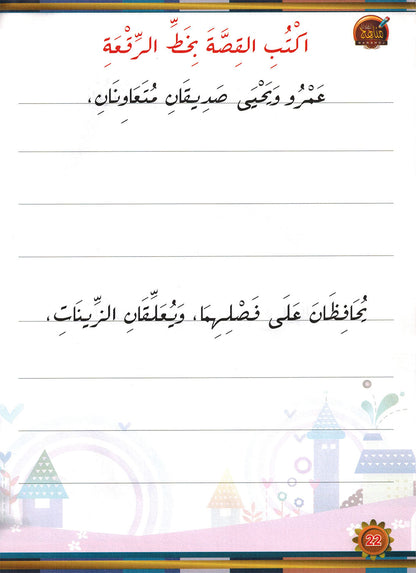 مناهج
اكْتُبِ القِصَّةَ بِخَطِّ الرِّقْعَةِ
عَمْرُو وَيَحْيَى صَدِيقَانِ مُتَعَاوِنَانِ،
يُحَافِظَانَ عَلَى فَصْلِهِمَا، وَيُعَلِّقَانِ الزِّينَاتِ،
22